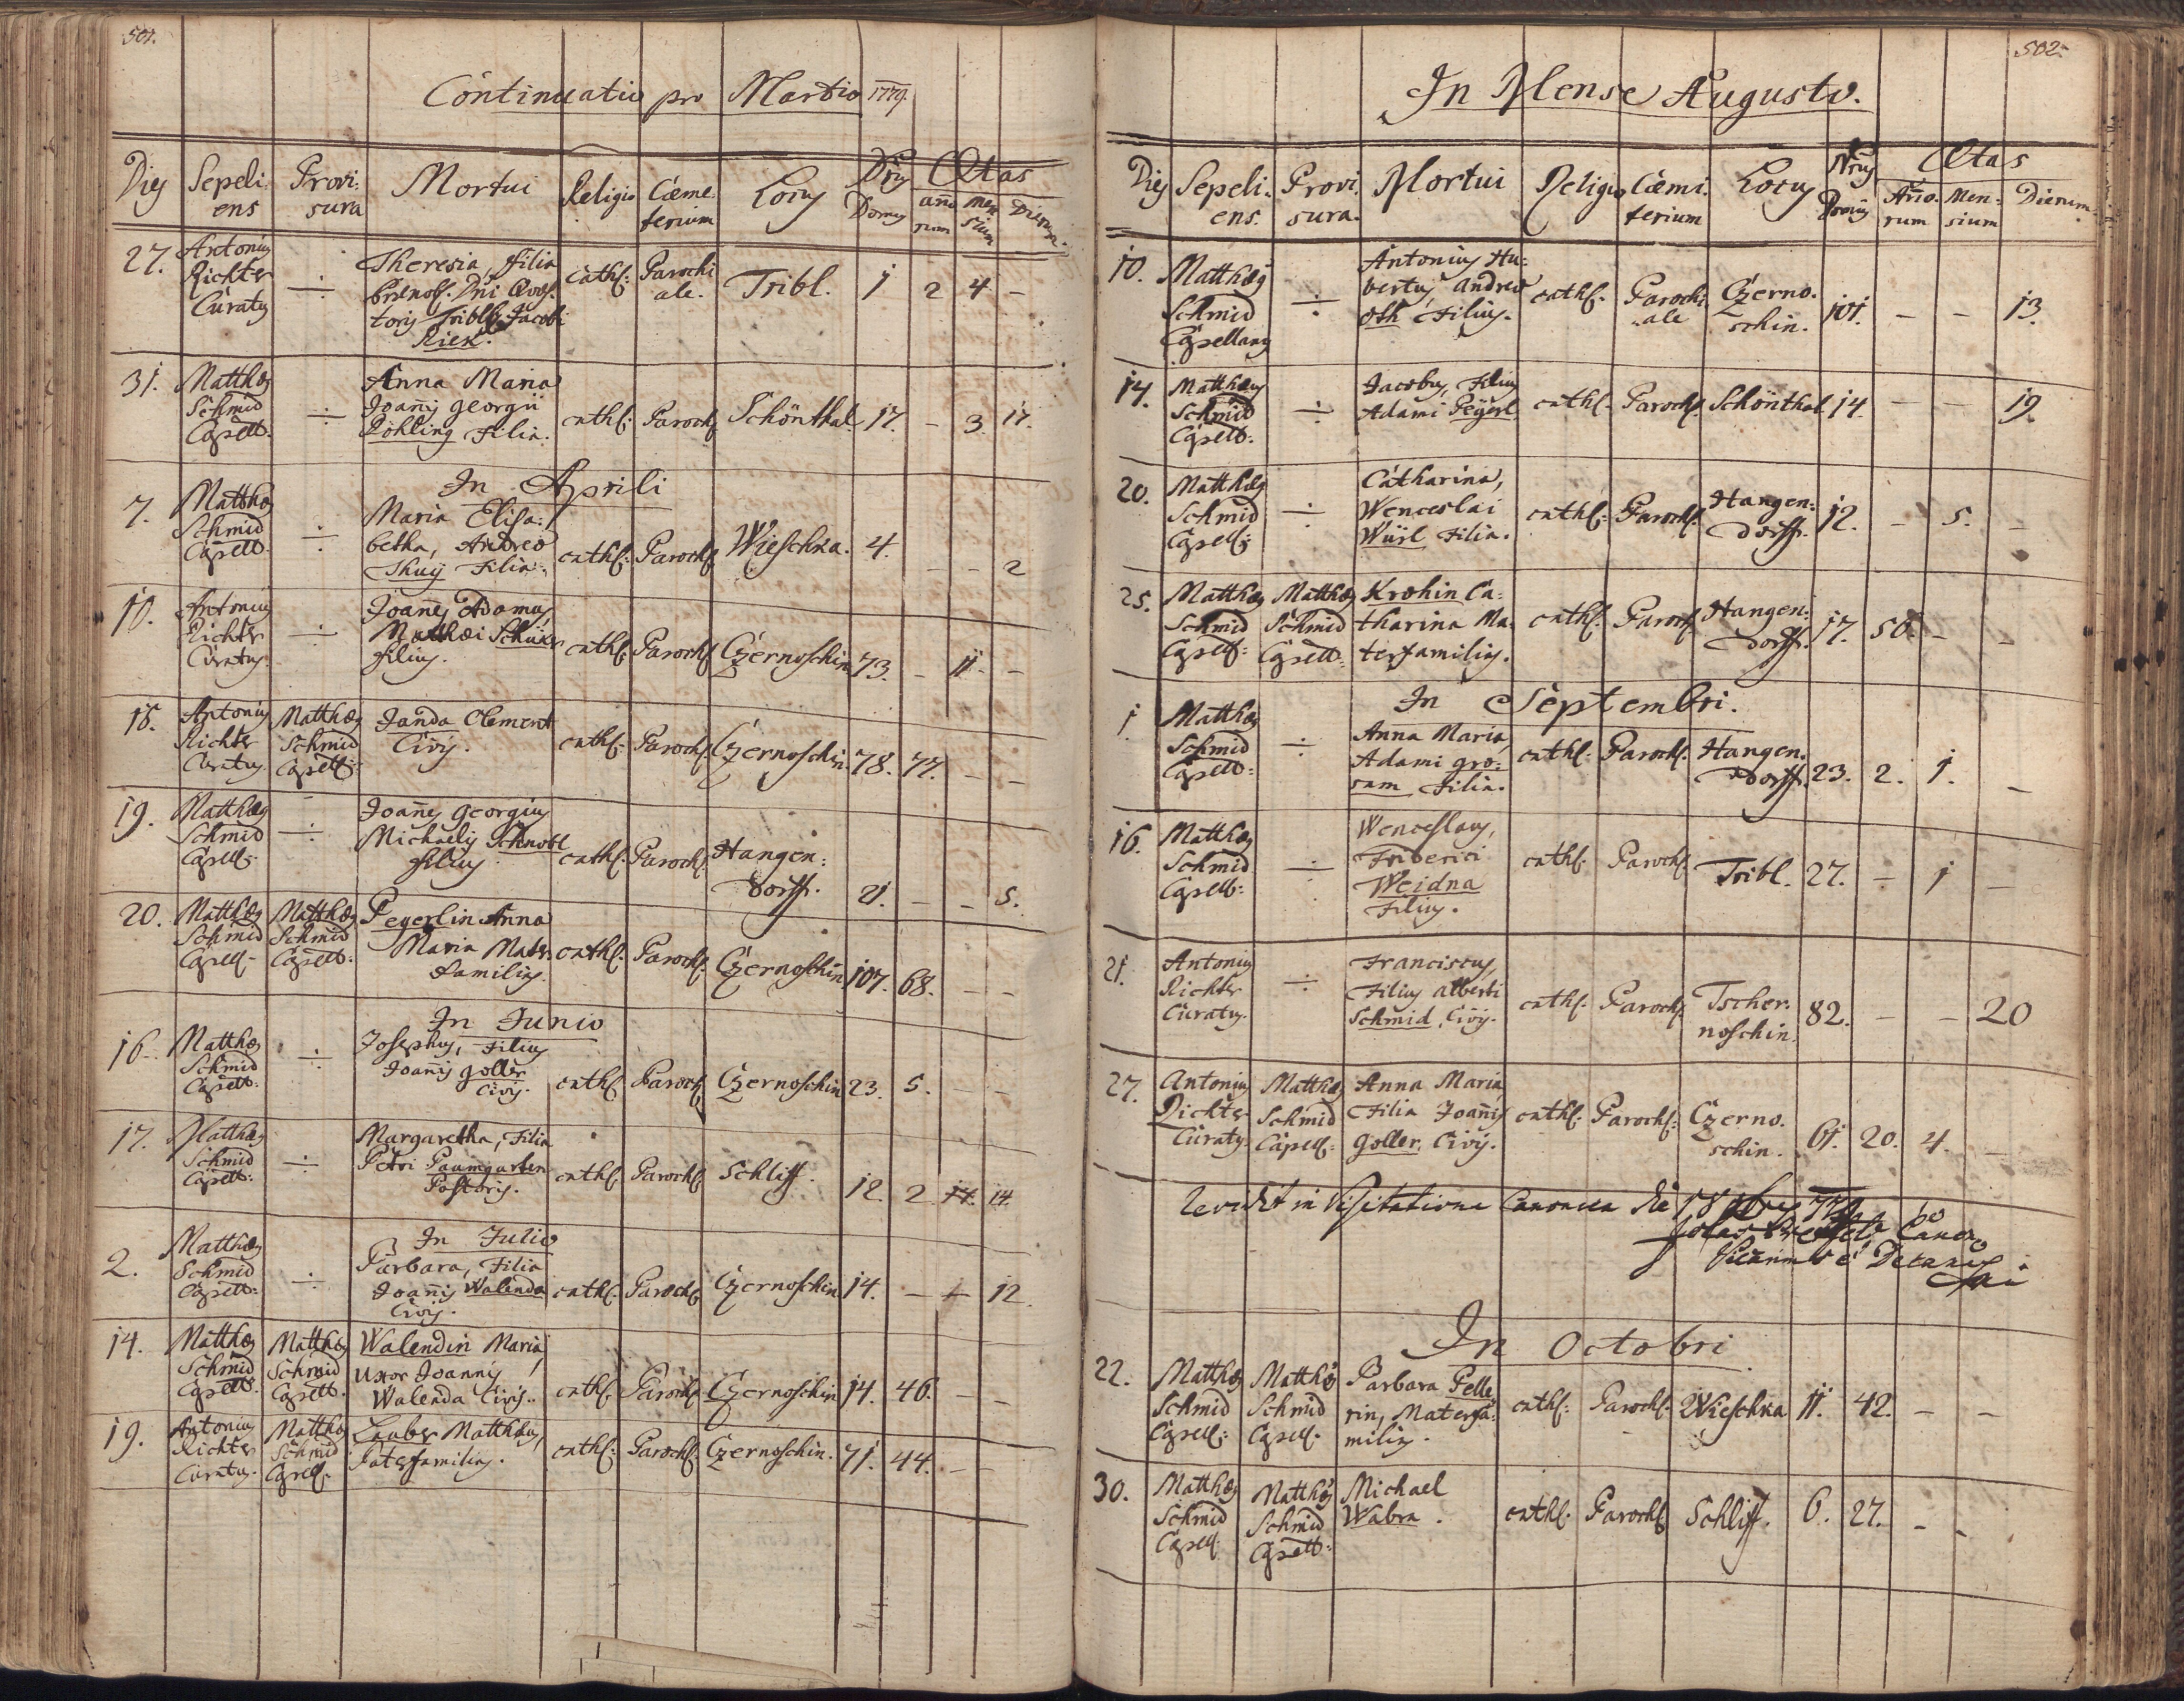 501.
Continuatio pro Martio 1779.
Dies Sepeli: Provi: Mortui Religio Cæme: Locus Nrus Ætas
ens sura terium Domus año rum Men sium Dierum.
27. Antonius Richter Curatus ÷ Theresia, filia
Dni
toris Tribl: Jacobi
Riek. cathl: Parochi ale. Tribl. 1 2 4 –
31. Matthæus Schmid Capell: ÷ Anna Maria
Joañis Georgii
Röhling Filia. cathl: Paroch: Schönthal. 17. – 3. 17.
In Aprili
7. Matthæus Schmid Capell: ÷ Maria Elisa:
betha, Andreæ
Thuÿ Filia. cathl: Paroch: Wieschka. 4. – – 2
10. Antonius Richter Curatus. ÷ Joañes Adamus,
Matthæi Schük
filius. cathl: Paroch: Czernoschin 73. – 11 –
18. Antonius Richter Curatus. Matthæus Schmid Capell: Janda Clement
Civis. cathl: Paroch: Czernoschin. 78. 77. – –
19. Matthæus Schmid Capell: ÷ Joañes Georgius
Michaelis Schnobl
filius cathl: Paroch: Hangen:
dorff. 21. – – 5.
20. Matthæus Schmid Capell: Matthæus Schmid Capell: Peyerlin Anna
Maria Mater
familias. cathl: Paroch: Czernoschin. 107. 68. – –
In Junio
16. Matthæus Schmid Capell: ÷ Josephus, Filius
Joañis Goller
Civis. cathl: Paroch: Czernoschin 23. 5. – –
17. Matthæus Schmid Capell: ÷ Margaretha, Filia
Petri Paumgarten
Pastoris. cathl: Paroch: Schliff. 12. 2 14. 14
In Julio
2. Matthæus Schmid Capell: ÷ Barbara, Filia
Joañis Walenda
Civis. cathl: Paroch: Czernoschin 14. – – 12.
14. Matthæus Schmid Capell: Matthæus Schmid Capell. Walendin Maria,
Uxor Joannis
Walenda Civis. cathl: Paroch: Czernoschin 14. 46. – –
19. Antonius Richter Curatus. Matthæus Schmid Capell. Lauber Matthæus,
Paterfamilias. cathl: Paroch: Czernoschin. 71. 44. – –
502.
In Mense Augusto.
Dies Sepeli: Provi: Mortui Religio Cæmi: Locus Nrus Ætas
ens. sura. terium Domus Año: rum Men: sium Dierum.
10. Matthæus Schmid Capellanus ÷ Antonius Hu:
bertus, Andreæ
Oth Filius. cathl: Parochi
ale Czerno:
schin. 101. – – 13.
14. Matthæus Schmid Capell: ÷ Jacobus, Filius
Adami Peÿerl cathl. Paroch: Schönthal 14. – – 19.
20. Matthæus Schmid Capell: ÷ Catharina,
Wenceslai
Würl Filia. cathl: Paroch: Hangen:
dorff. 12. – 5. –
25. Matthæus Schmid Capell: Matthæus Schmid Capell: Krohin Ca:
tharina Ma:
terfamilias. cathl: Paroch: Hangen:
dorff. 17. 50. – –
In Septembri.
1 Matthæus Schmid Capell: ÷ Anna Maria,
Adami Gro:
sam Filia. cathl: Paroch: Hangen:
dorff. 23. 2. 1. –
16. Matthæus Schmid Capell: ÷ Wenceslaus,
Friderici
Weidna
Filius. cathl: Paroch: Tribl. 27. – 1 –
21. Antonius Richter Curatus. ÷ Franciscus,
Filius Alberti
Schmid, Civis. cathl: Paroch: Tscher:
noschin. 82. – – 20
27. Antonius Richter Curatus. Matthæus Schmid Capell: Anna Maria,
Filia Joañis
Goller, Civis. cathl: Paroch: Czerno:
schin. 61. 20. 4. –
Revidit in Visitatione Canonica die 18 9bris 779
In Octobri
22. Matthæus Schmid Capell: Matthæus Schmid Capell. Barbara Pelle
rin, Materfa:
milias. cathl: Paroch: Wieschka 11. 42. – –
30. Matthæus Schmid Capell: Matthæus Schmid Capell: Michael
Wabra. cathl: Paroch: Schliff. 6. 27. – –